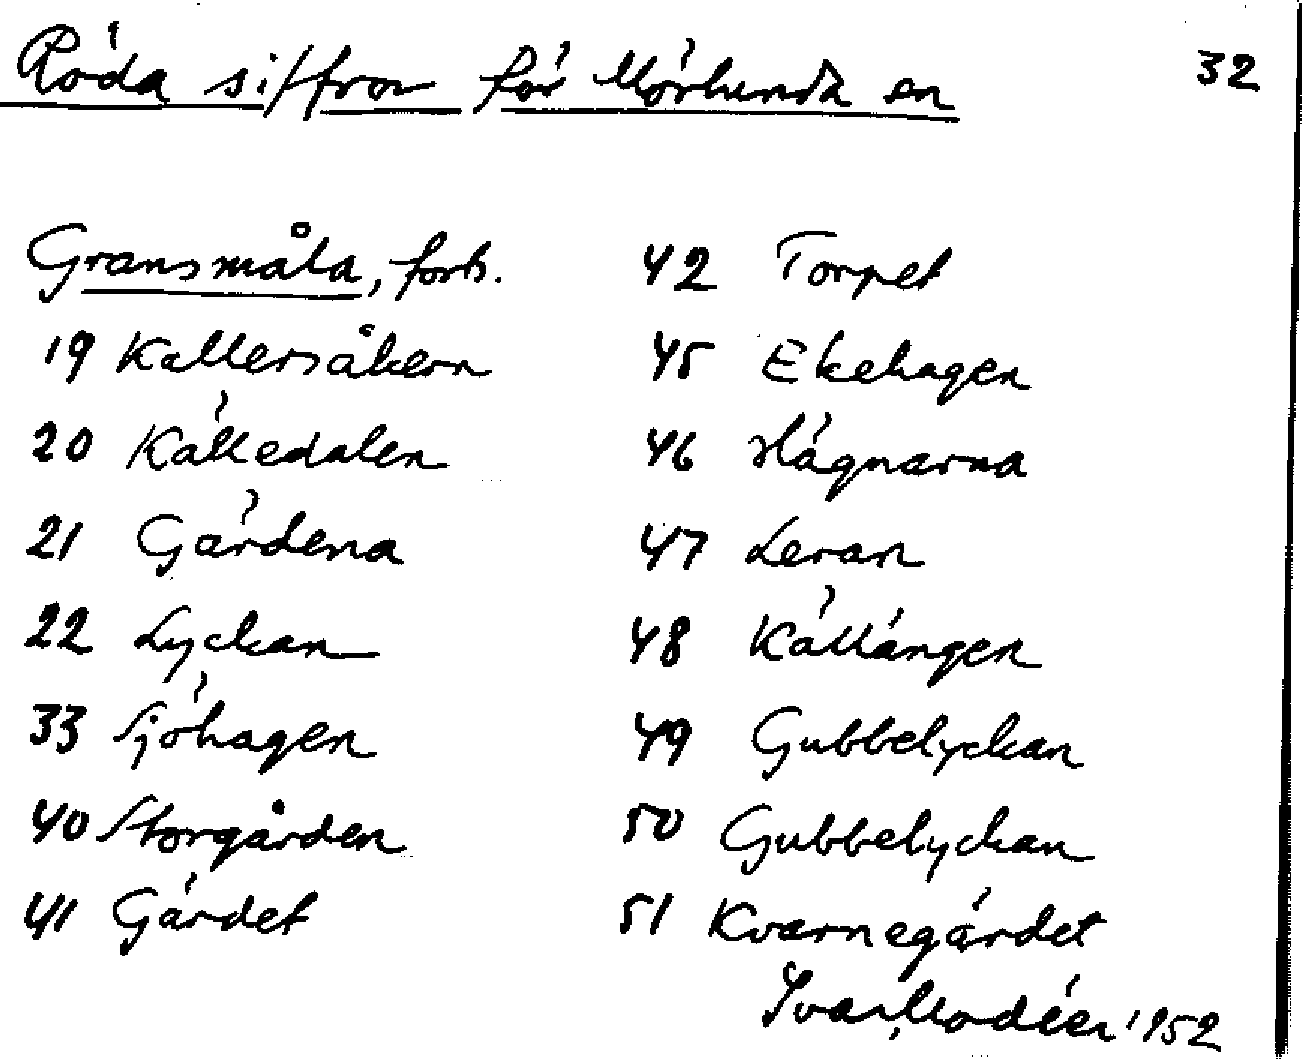 Röda siffror för Mörlunda sn
32
Gransmåla, forts.
19 Kallersåkern
20 Källedalen
21 Gärdena
22 Lyckan
33 Sjöhagen
40 Storgården
41 Gärdet
42 Torpet
45 Ekehagen
46 Hägnarna
47 Leran
48 Källängen
49 Gubbelyckan
50 Gubbelyckan
51 Kvarnegärdet
Ivar Modéer 1952